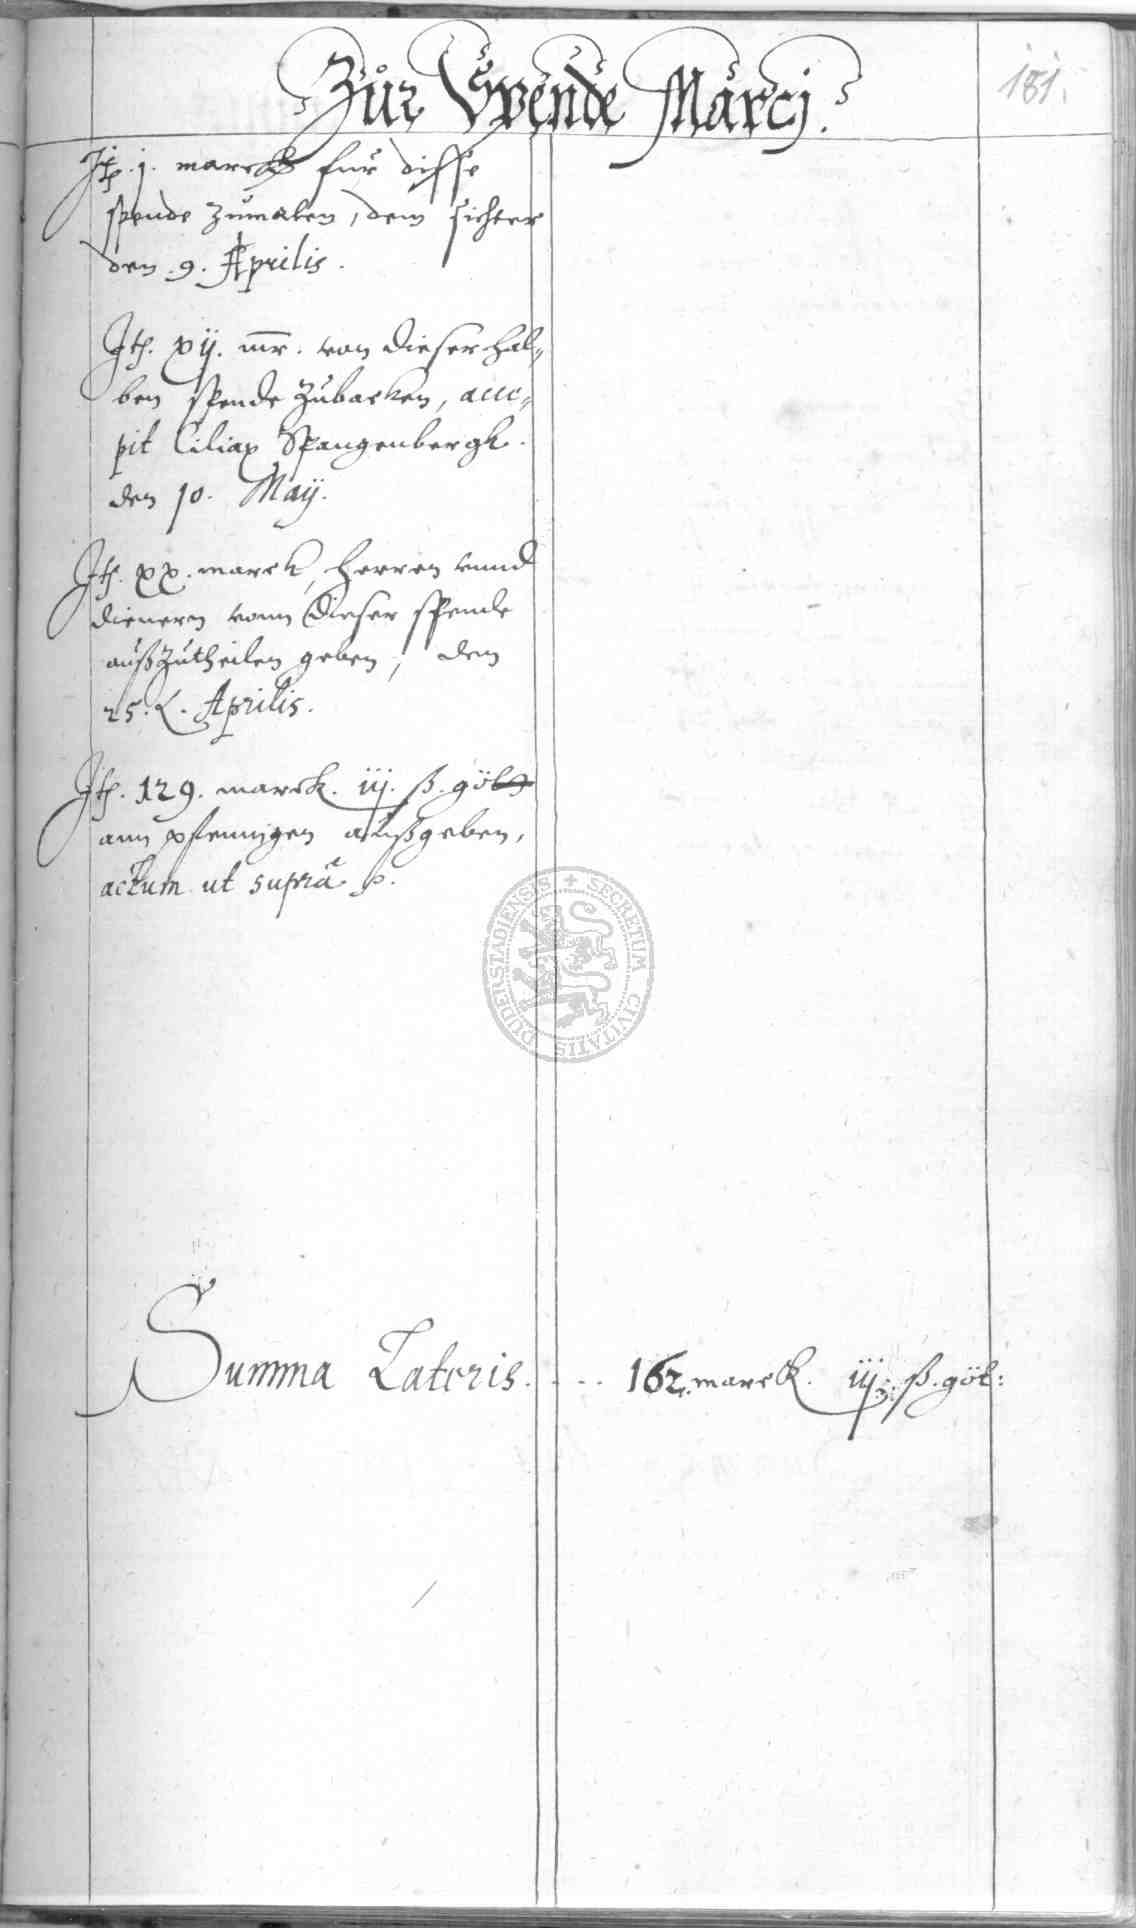 181.
Zur Spende Marcj.
Jtp. j. marck fur disse
spende zumalen, dem sichter
den .9. Aprilis.
Jtp. xij. mr. von dieser hal„
ben spende Zubacken, acce„
pit Ciliax Spangenbergk.
den 10. Maij.
Jtp. xx. marck, herren vnnd
dienern vonn dieser spende
außzutheilen geben, den
25. Aprilis.
Jtp. 129. marck. iij. ß. göt
ann pfennigen außgeben,
actum ut suprà p.
SECRETUM CIVITATIS DUDERSTADIENSIS
Summa Lateris. . . . 162. marck. iij. ß. göt: